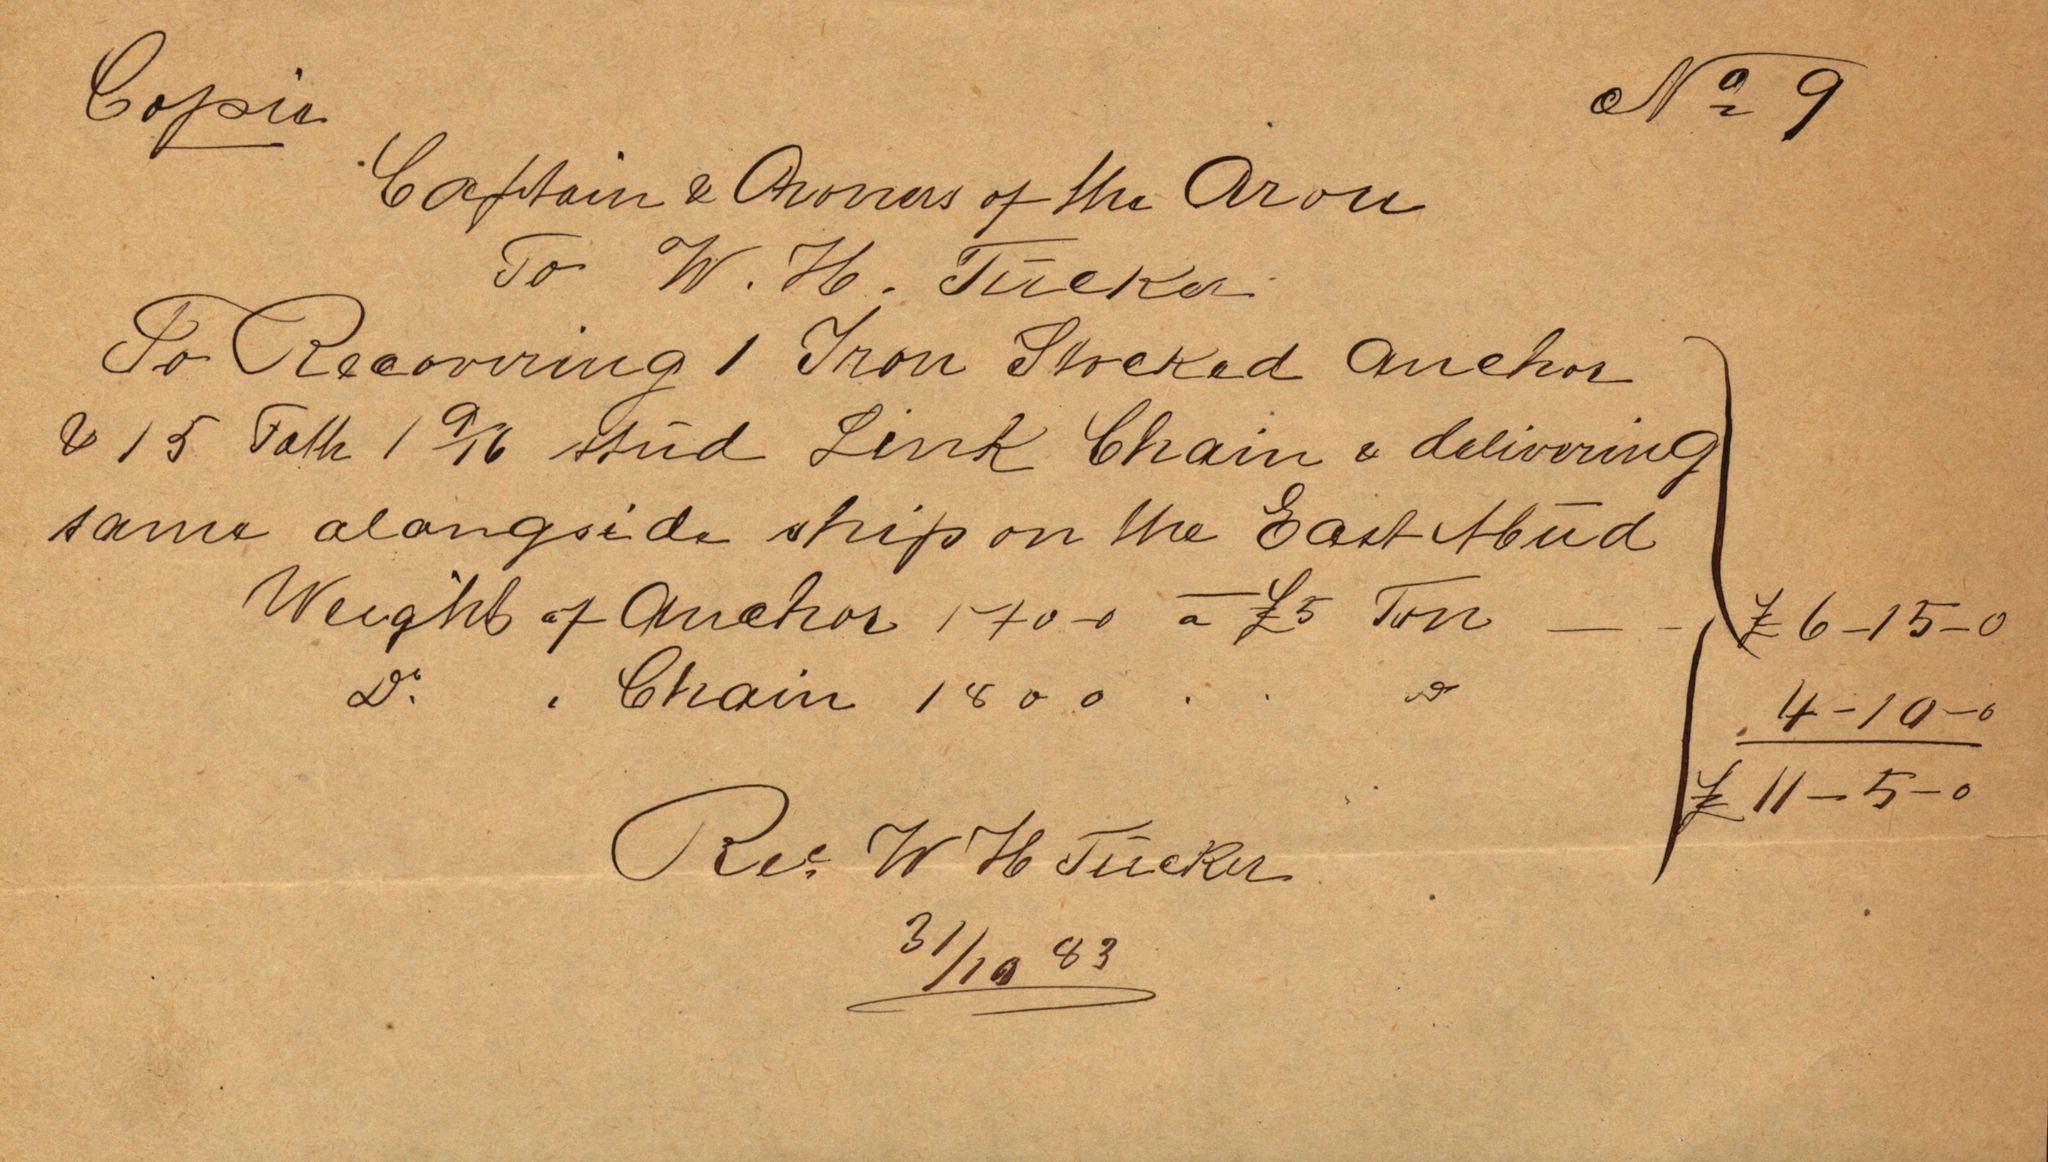 Copie
No 9
Captain & Owners of the Aron
To W. H. Tucker
To Recovering 1 Iron Stocked Anchor
& 15 Fath 1 9/16 stud Link Chain & delivering
same alongside ship on the East Mud
Weight of Anchor 1 7 0-0 a £5 Ton — - £ 6-15-0
Do. . Chain 1 8 0 0 . . do 4-10-0
£ 11-5-0
Rec. W H Tucker
31/10 83